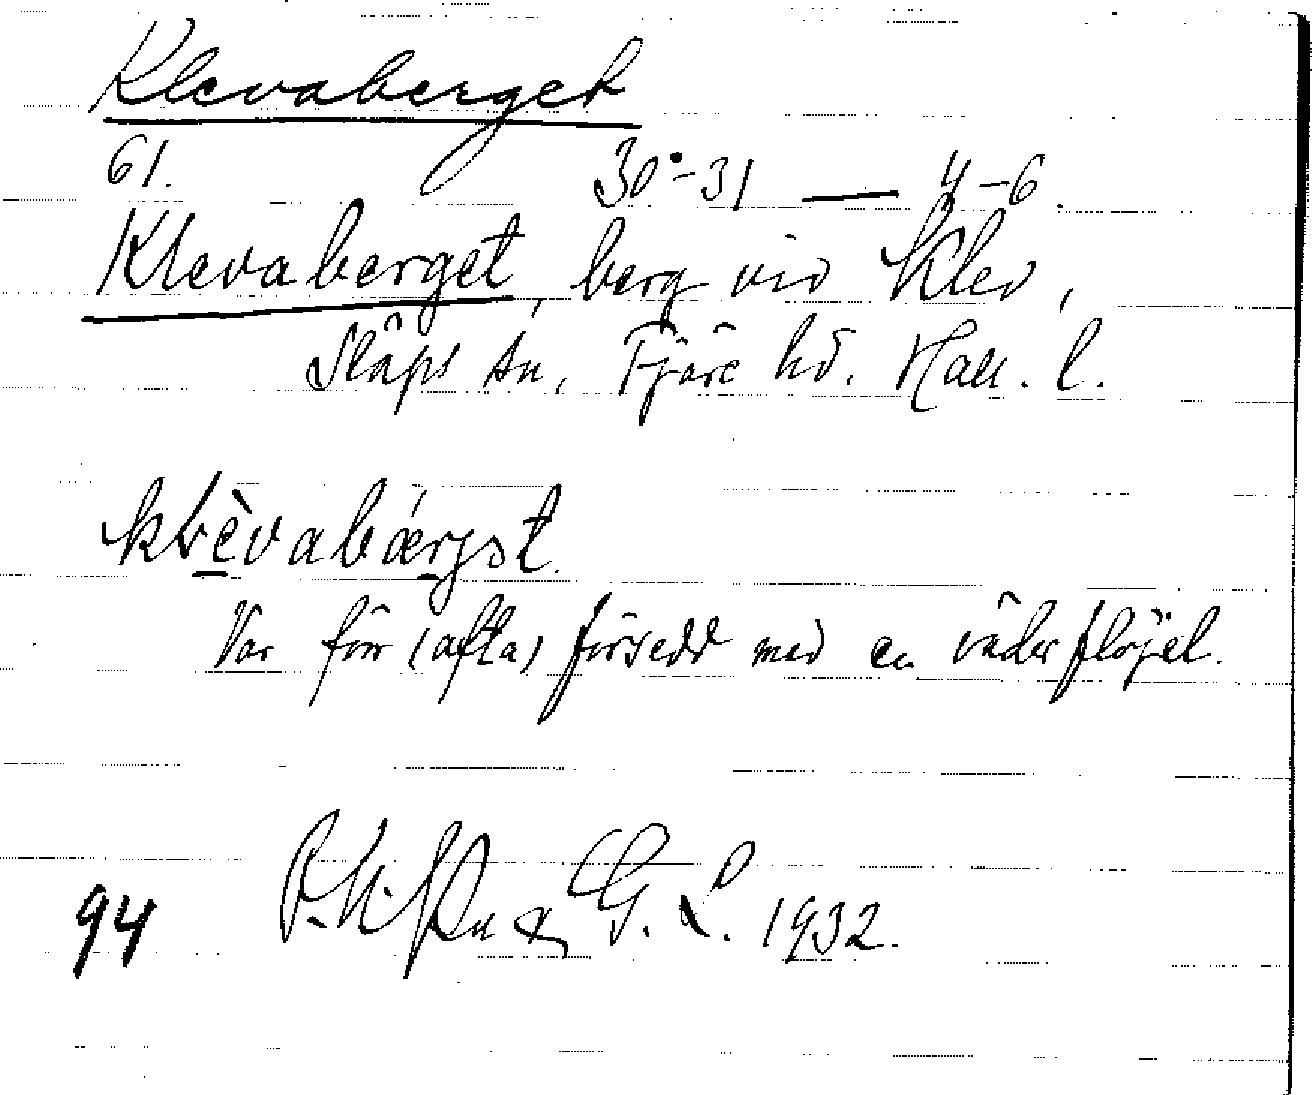 Klevaberget
61. 30°-31 — 4-6.
Klevaberget, berg vid Klev,
Släps sn, Fjäre hd. Hall. l.
Var förr (ofta) försedd med en väderflöjel.
94 G. L. 1932.